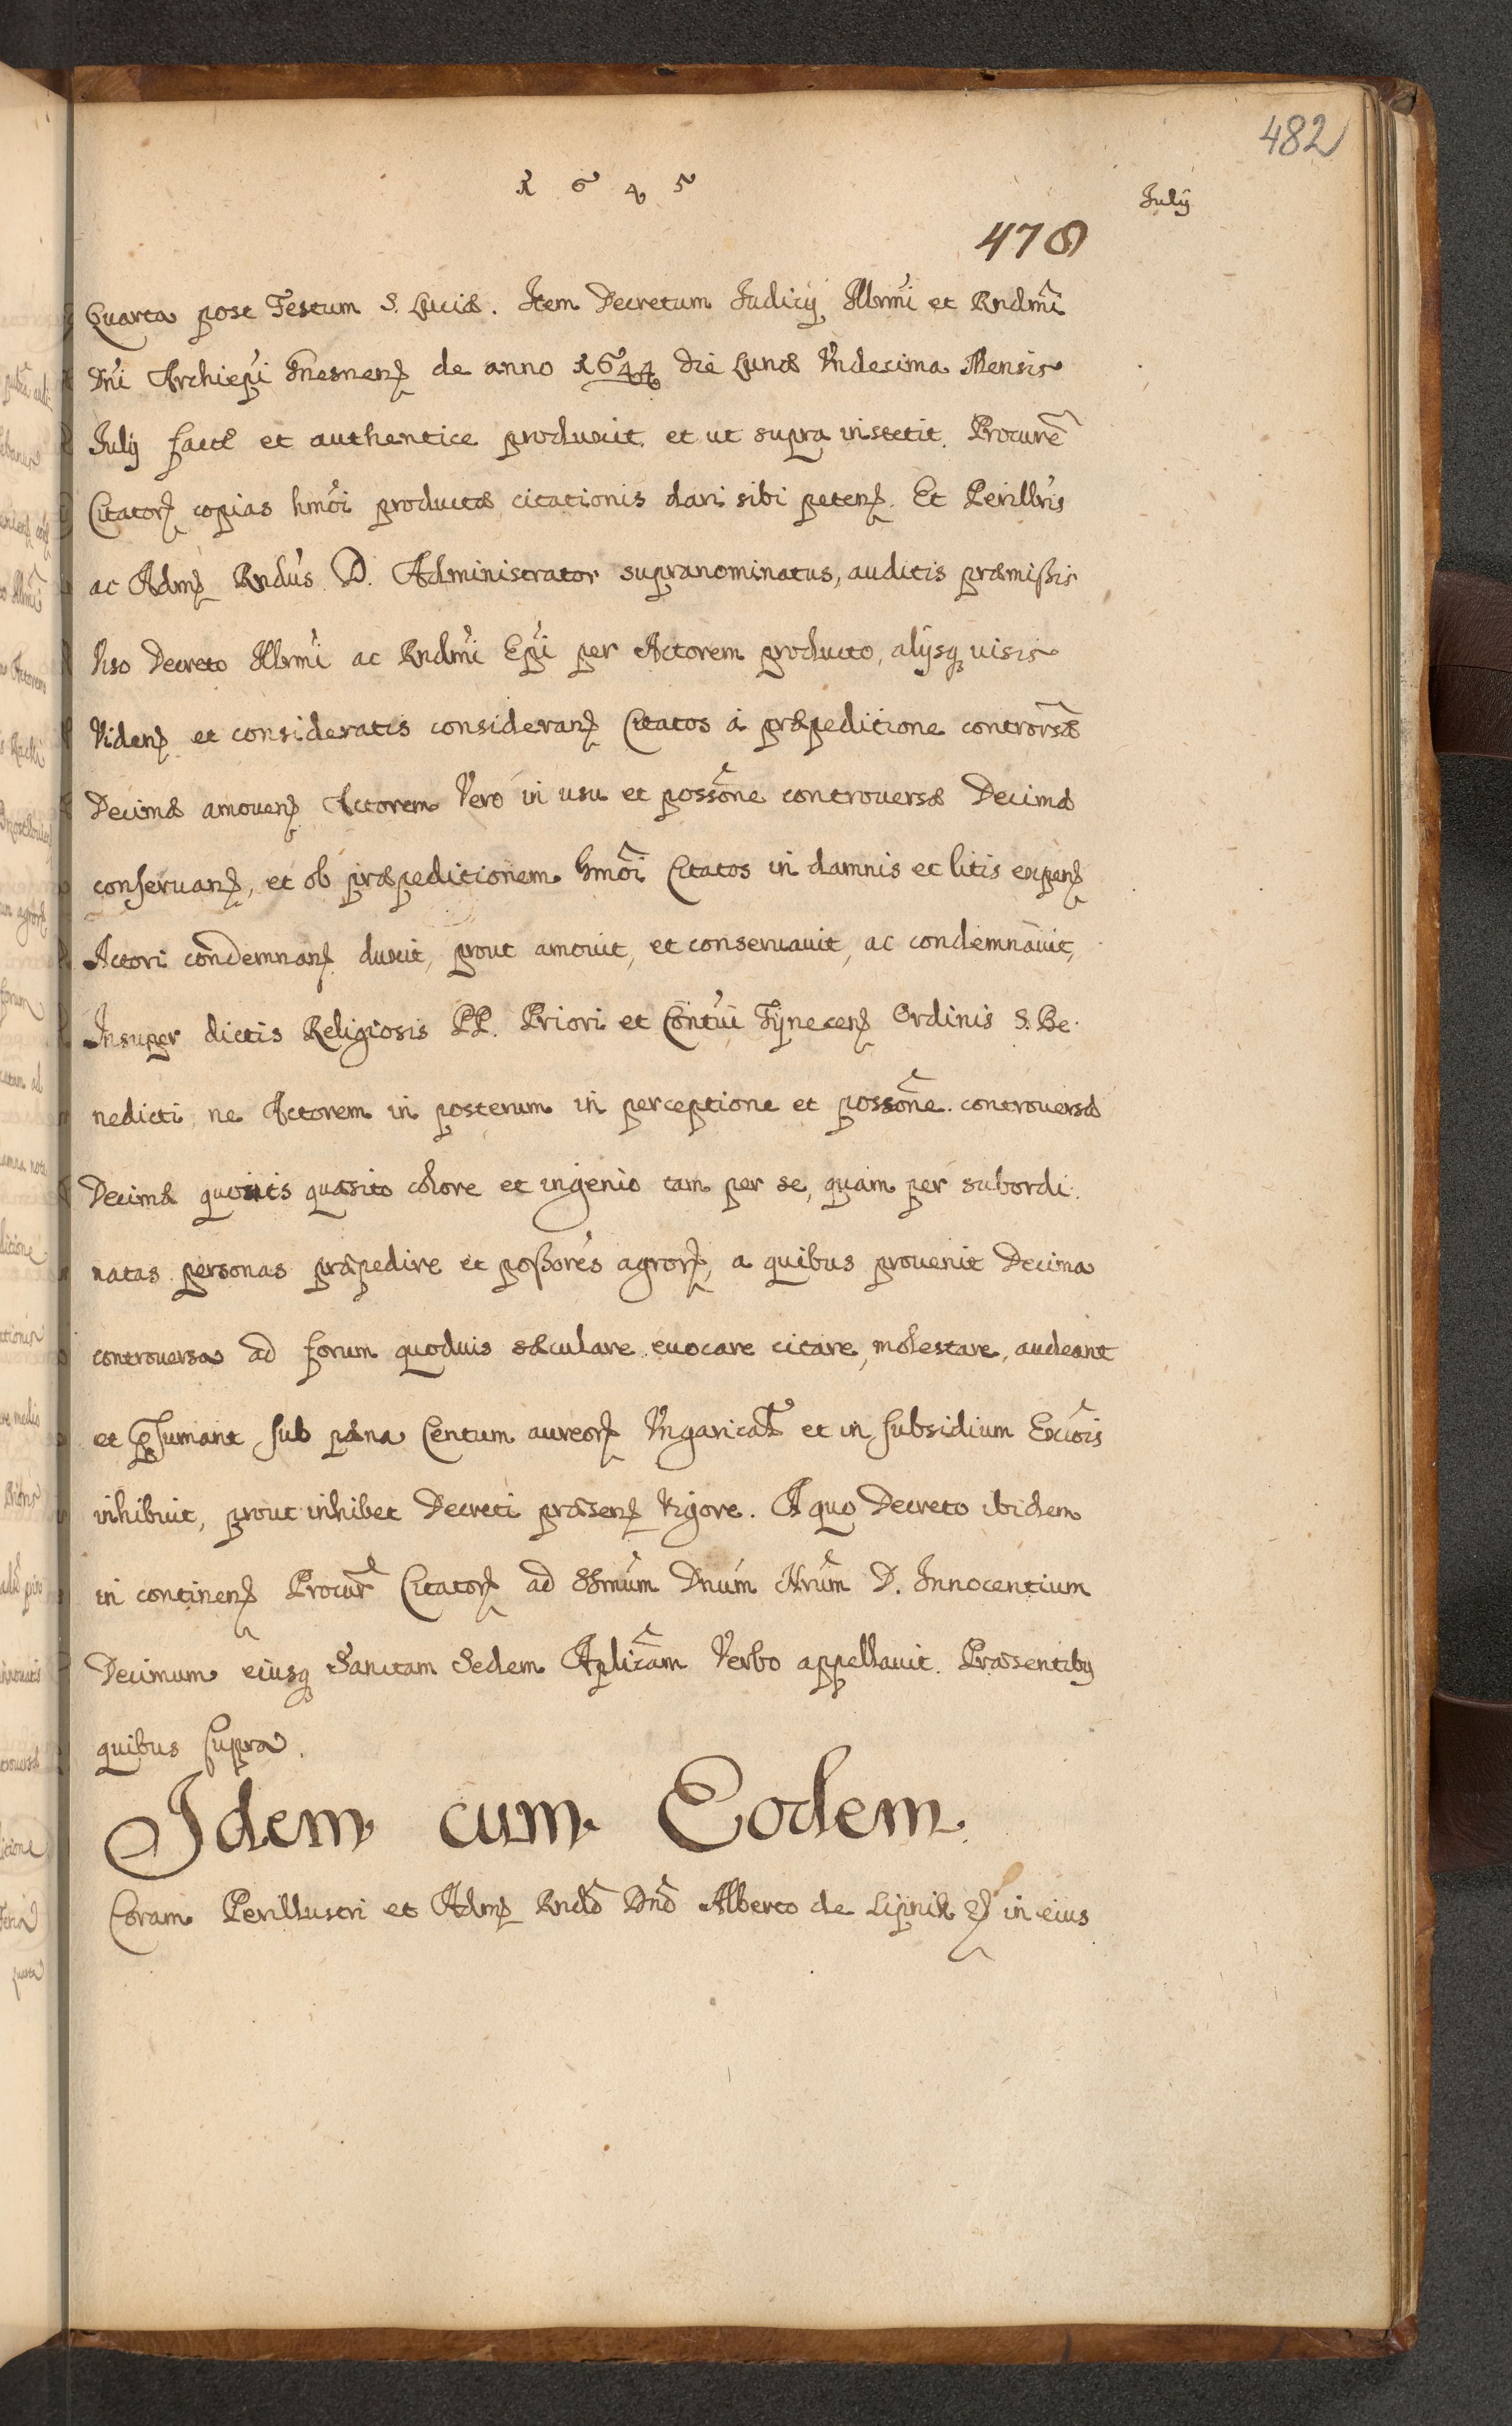 482
1645
July
478
Quarta post Festum S. Luciæ. Item Decretum Judicij Illrmi et Rndmi
Dni Archiepi Gnesnen de anno 1644 die Lunæ Undecima Mensis
July factæ et authentice produxit et ut supra institit. Procure
Citator copias hmoi productæ citationis dari sibi peten. Et Perillris
ac Adm Rndus D. Administrator supranominatus, auditis præmissis
hso Decreto Illrmi ac Rndmi Epi per Actorem producto, alijsq visis
Viden et consideratis consideran Citatos à præpeditione controrsæ
Decimæ amoven Actorem Vero in usu et possone controversæ Decimæ
conservan, et ob præpeditionem hmoi Citatos in damnis et litis expen
Actori condemnan duxit, prout amovit, et conservavit, ac condemnavit,
Insuper dictis Religiosis PP. Priori et Contui Tynecen Ordinis S. Be
nedicti ne Actorem in posterum in perceptione et possone controversæ
Decimæ quovis quæsito colore et ingenio tam per se, quam per subordi
natas personas præpedire et possores agror, a quibus provenit Decima
controversa ad forum quoduis sæculare evocare citare, molestare, audeant
et psumant sub pæna Centum aureor Ungarical et in subsidium Excois
inhibuit, prout inhibet Decreti præsen Vigore. A quo Decreto ibidem
in continen Procur Citator ad SSmum Dnum Nrum D. Innocentium
Decimum eiusq Sanctam Sedem Aplicam Verbo appellavit. Præsentibq
quibus supra.
Idem cum Eodem.
Coram Perillustri et Adm Rndo Dno Alberto de Lipnik & in eius